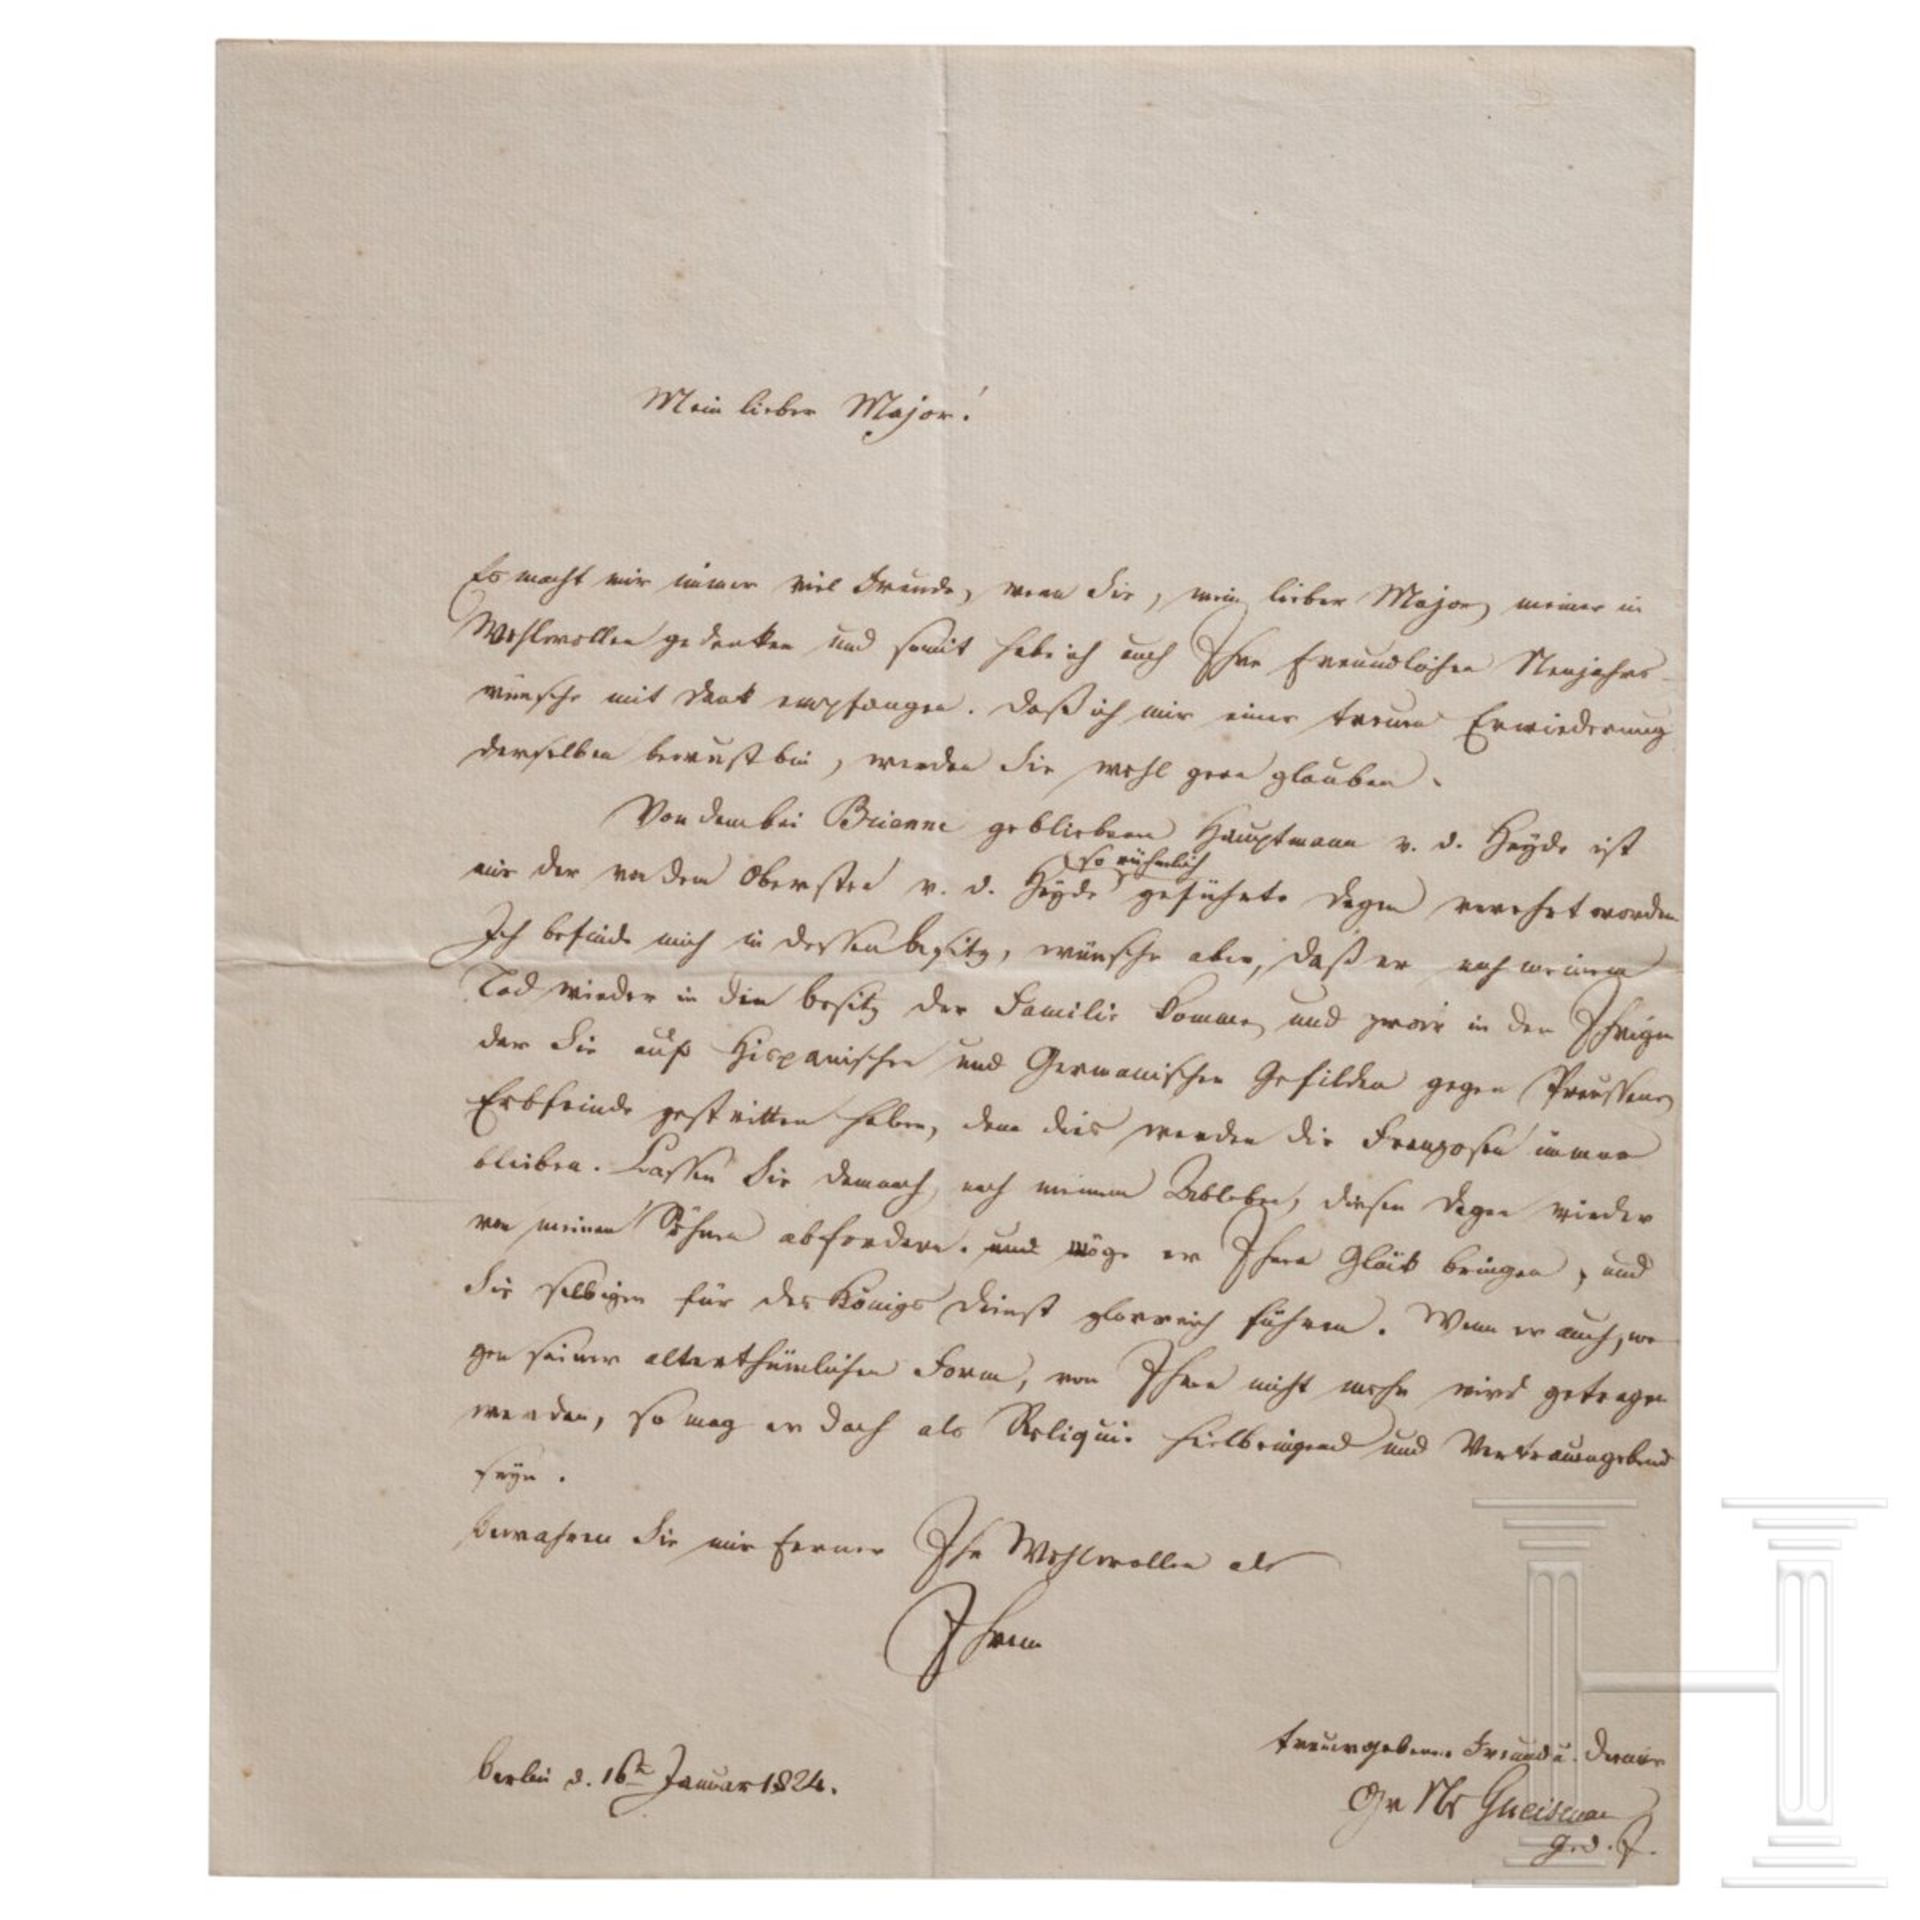 Mein lieber Major!
Es macht mir immer viel Freude, wenn Sie, mein lieber Major, meiner in
Wohlwollen gedenken und somit habe ich auch Ihre freundlichen Neujahrs-
wünsche mit Dank empfangen. Daß ich mir einer treuen Erwiederung
derselben bewußt bin, werden Sie wohl gern glauben.
Von dem bei Brienne gebliebenen Hauptmann v. d. Heyde ist
so rühmlich
mir der von dem Obersten v. d. Heyde geführte Degen verehrt worden
Ich befinde mich in dessen Besitz, wünsche aber, daß er nach meinem
Tod wieder in den Besitz der Familie komme, und zwar in den Ihrigen
der Sie auf Hispanischen und Germanischen Gefilden gegen Preussens
Erbfeinde gestritten haben, denn dies werden die Franzosen immer
bleiben. Lassen Sie demnach, nach meinem Ableben, diesen Degen wieder
von meinen Söhnen abfordern. und möge er Ihnen Glük bringen, und
Sie selbigen für des Königs Dienst glorreich führen. Wenn er auch, we-
gen seiner alterthümlichen Form, von Ihnen nicht mehr wird getragen
werden, so mag er doch als Reliquie heilbringend und Vertrauengebend
seyn.
Bewahren Sie mir ferner Ihr Wohlwollen als
Ihrem
treuergebenen Freund u. Diener
Berlin d. 16ten Januar 1824.
Gr N v Gneisenau